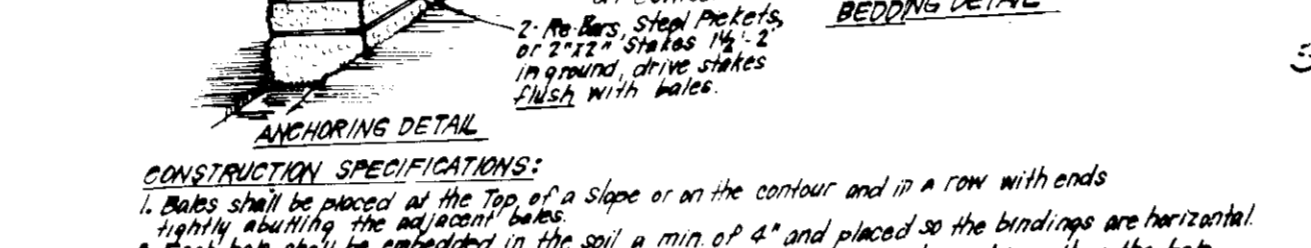 BEDDING DETAIL
2-Re-Bars, Steel Pickets,
or 2"x2" Stakes 1½'-2'
in ground, drive stakes
flush with bales.
ANCHORING DETAIL
CONSTRUCTION SPECIFICATIONS:
1. Bales shall be placed at the Top of a slope or on the contour and in a row with ends
tightly abutting the adjacent bales.
2. Each bale shall be embedded in the soil a min. of 4" and placed so the bindings are horizontal.